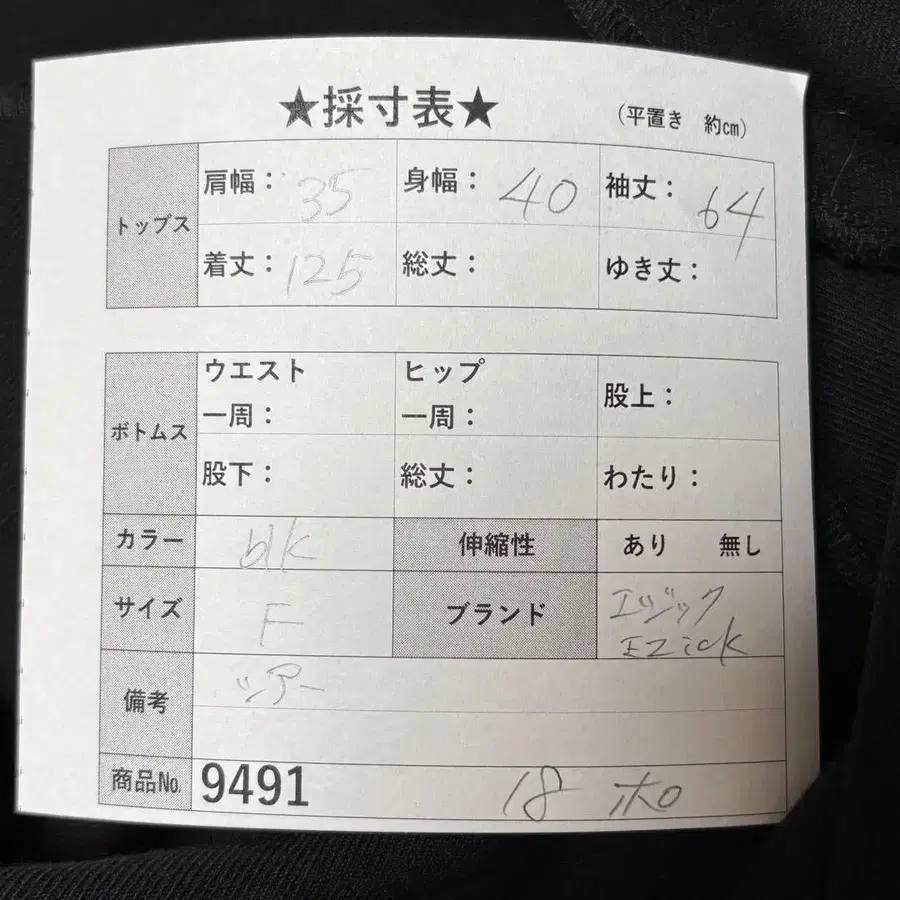 ★採寸表★
(平置き 約㎝)
トップス
肩幅： 35 身幅： 40 袖丈： 64
着丈： 125 総丈： ゆき丈：
ボトムス
ウエスト ヒップ
一周： 一周： 股上：
股下： 総丈： わたり：
カラー blk 伸縮性 あり 無し
サイズ F ブランド エジック
EZick
備考 シアー
商品No. 9491 18 ホロ